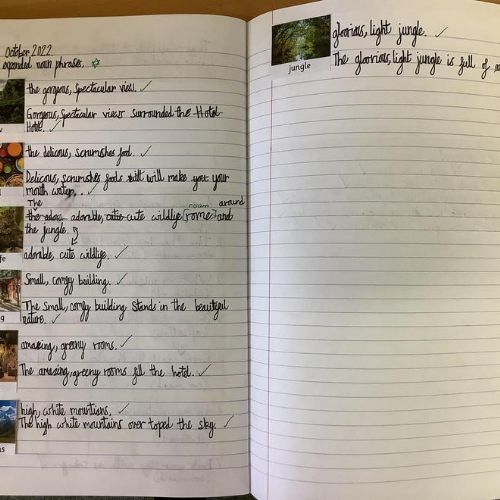 October 2022
expanded noun phrases.
the gorgeous, Spectacular view.
Gorgeous, Spectacular views surrounded the Hotel
Hotel.
the delicious, scrumshes food.
Delicious, scrumshes foods will make your
mouth water.
The room around
adorable, cute wildlife (rome) and
the jungle.
adorable, cute wildlife.
Small, comfy building.
The Small, comfy building Stands in the beautiful
nature.
amazing, greeny rooms.
The amazing, greeny rooms fill the hotel.
high, white mountians.
The high white mountains over toped the sky.
glorrious, light jungle.
jungle
The glorrious, light jungle is full of